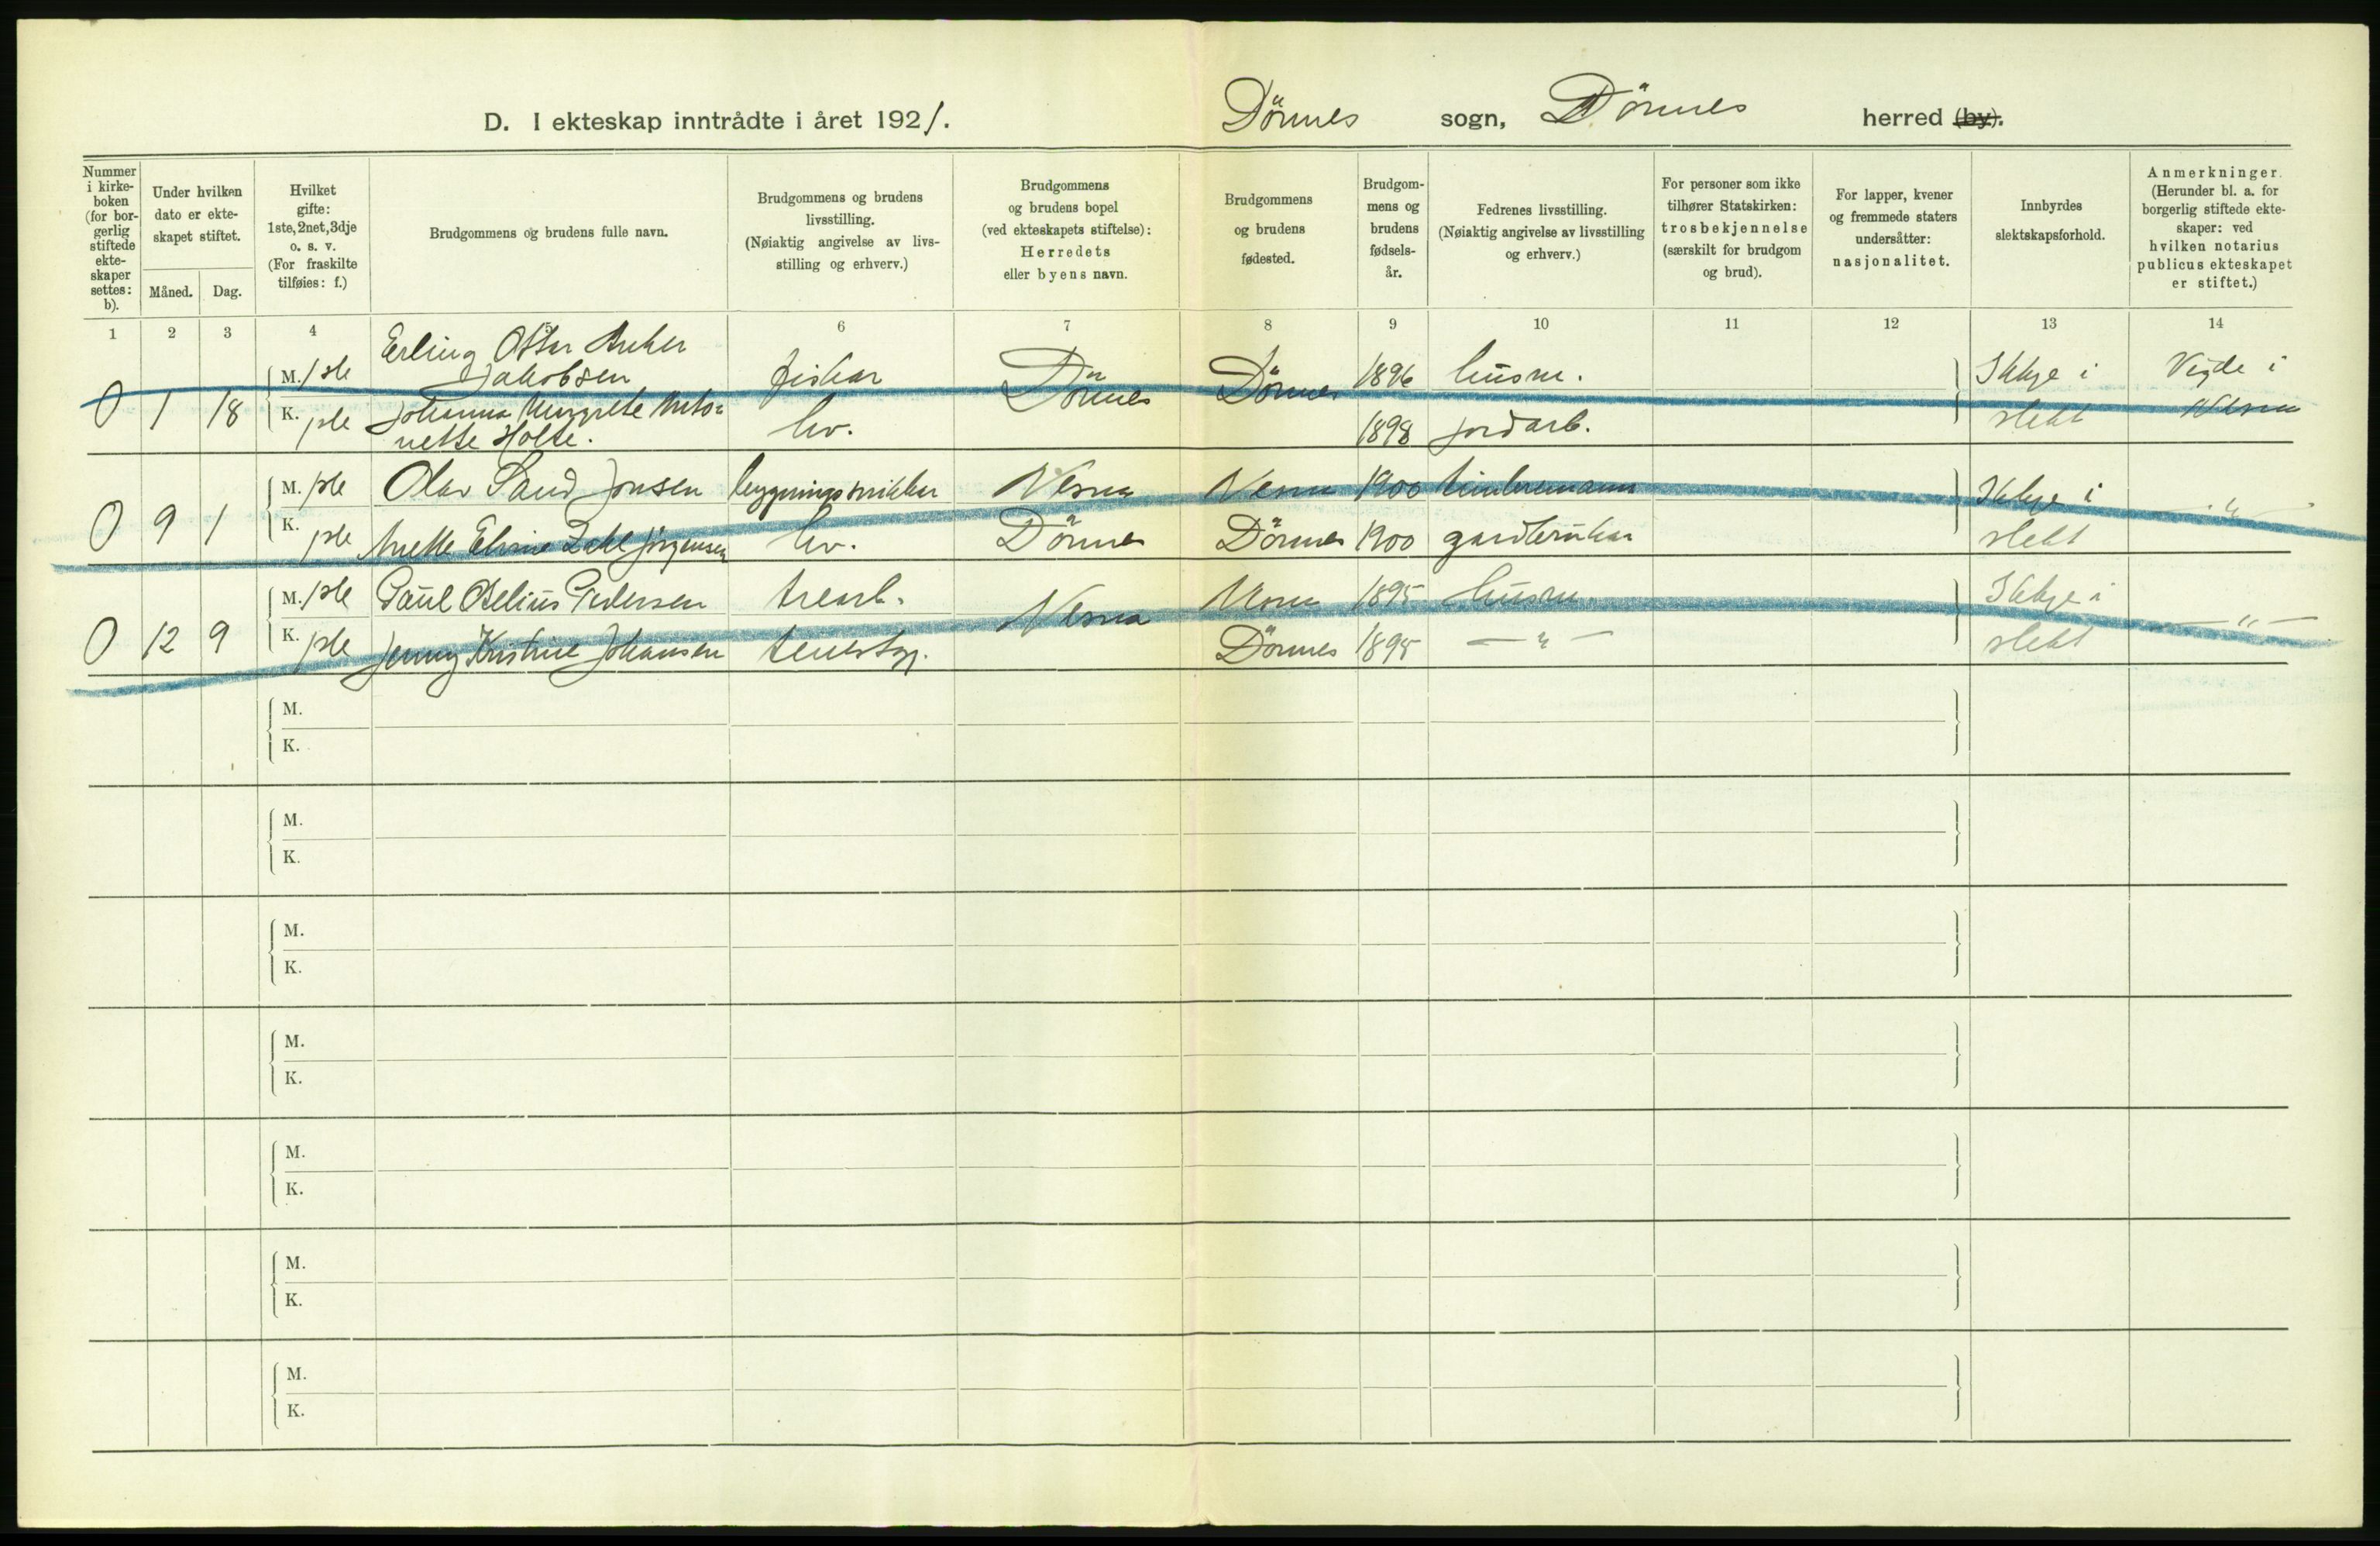 D. I ekteskap inntrådte i året 1921. Dönnes sogn, Dönnes herred (by).
Nummer i kirkeboken (for borgerlig stiftede ekteskaper settes: b).
Under hvilken dato er ekteskapet stiftet.
Måned. Dag.
Hvilket gifte: 1ste, 2net, 3dje o. s. v. (For fraskilte tilføies: f.)
Brudgommens og brudens fulle navn.
Brudgommens og brudens livsstilling. (Nøiaktig angivelse av livsstilling og erhverv.)
Brudgommens og brudens bopel (ved ekteskapets stiftelse): Herredets eller byens navn.
Brudgommens og brudens fødested.
Brudgommens og brudens fødselsår.
Fedrenes livsstilling. (Nøiaktig angivelse av livsstilling og erhverv.)
For personer som ikke tilhører Statskirken: trosbekjennelse (særskilt for brudgom og brud).
For lapper, kvener og fremmede staters undersåtter: nasjonalitet.
Innbyrdes slektskapsforhold.
Anmerkninger. (Herunder bl. a. for borgerlig stiftede ekteskaper: ved hvilken notarius publicus ekteskapet er stiftet.)
1 2 3 4 5 6 7 8 9 10 11 12 13 14
Erling Jakobsen
M. 1ste fiskar Dönnes Dönnes 1896 husm. Ikkje i Vigde i
0 1 18 K. 1ste Johanna Margrete Antonette Holte. hv. 1898 jordarb. slekt Nesna
M. 1ste Olav Sand Jonsen bygningssnikkar Nesna Nesna 1900 timbremann Ikkje i — " —
0 9 1 K. 1ste Anette Dahl Jörgensen hv. Dönnes Dönnes 1900 gardbrukar slekt
M. 1ste Paul Pedersen trearb. Nesna Nesna 1895 Husm. Ikkje i — " —
0 12 9 K. 1ste Jenny Kristine Johansen Dönnes 1895 — " — slekt
M.
K.
M.
K.
M.
K.
M.
K.
M.
K.
M.
K.
M.
K.